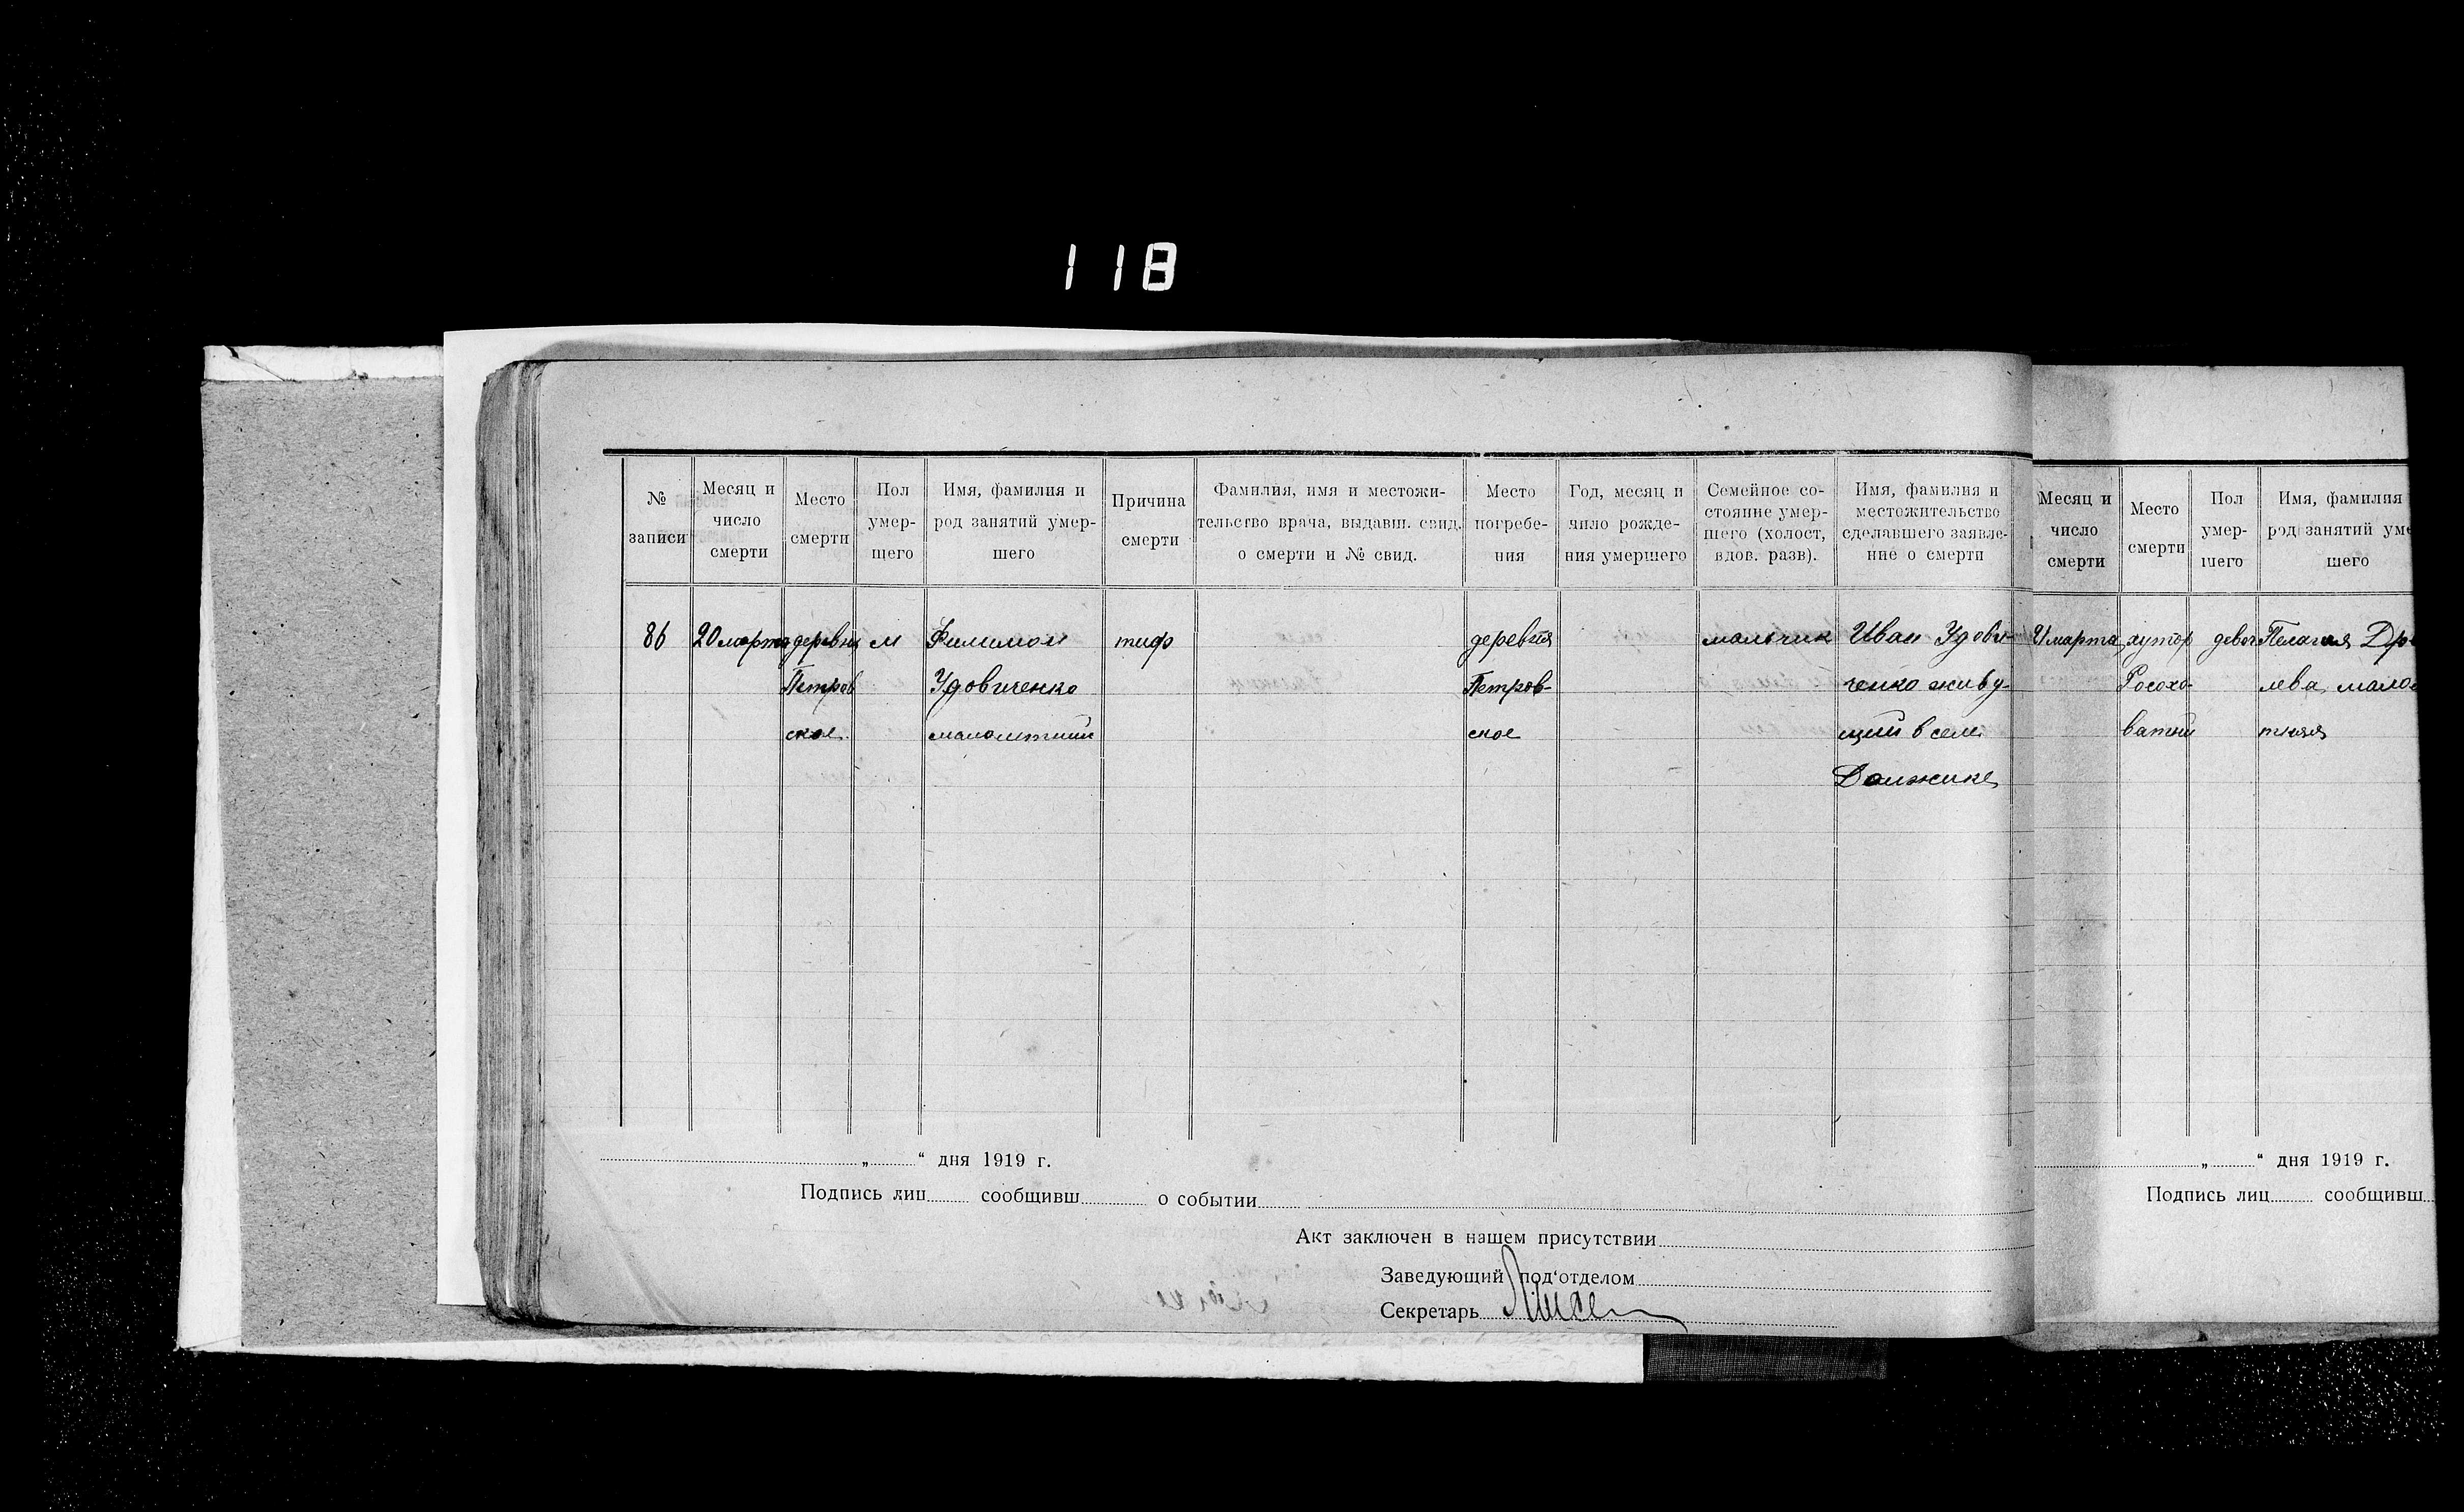 118
№ записи
Месяц и число смерти
Место смерти
Пол умер- шего
Имя, фамилия и род занятий умер- шего
Причина смерти
Фамилия, имя и местожи- тельство врача, выдавш. свид. о смерти и № свид.
Место погребе- ния
Год, месяц и число рожде- ния умершего
Семейное со- стояние умер- шего (холост, вдов. разв).
Имя, фамилия и местожительство сделавшего заявле- ние о смерти
86
20 марта
деревня
Петров
ское
м
Филимон
Удовиченко
малолетний
тиф
деревня
Петров-
ское
мальчик
Иван Удови-
ченко живу-
щий в селе
Должике
„ “ дня 1919 г.
Подпись лиц сообщивш о событии
Акт заключен в нашем присутствии
Заведующий под‘отделом
Секретарь
Месяц и число смерти
Место смерти
Пол умер- шего
Имя, фамилия род занятий уме шего
марта
хутор
Росохо-
ватый
девоч
Пелагея
лева, мало
тняя
„ “ дня 1919 г.
Подпись лиц сообщивш